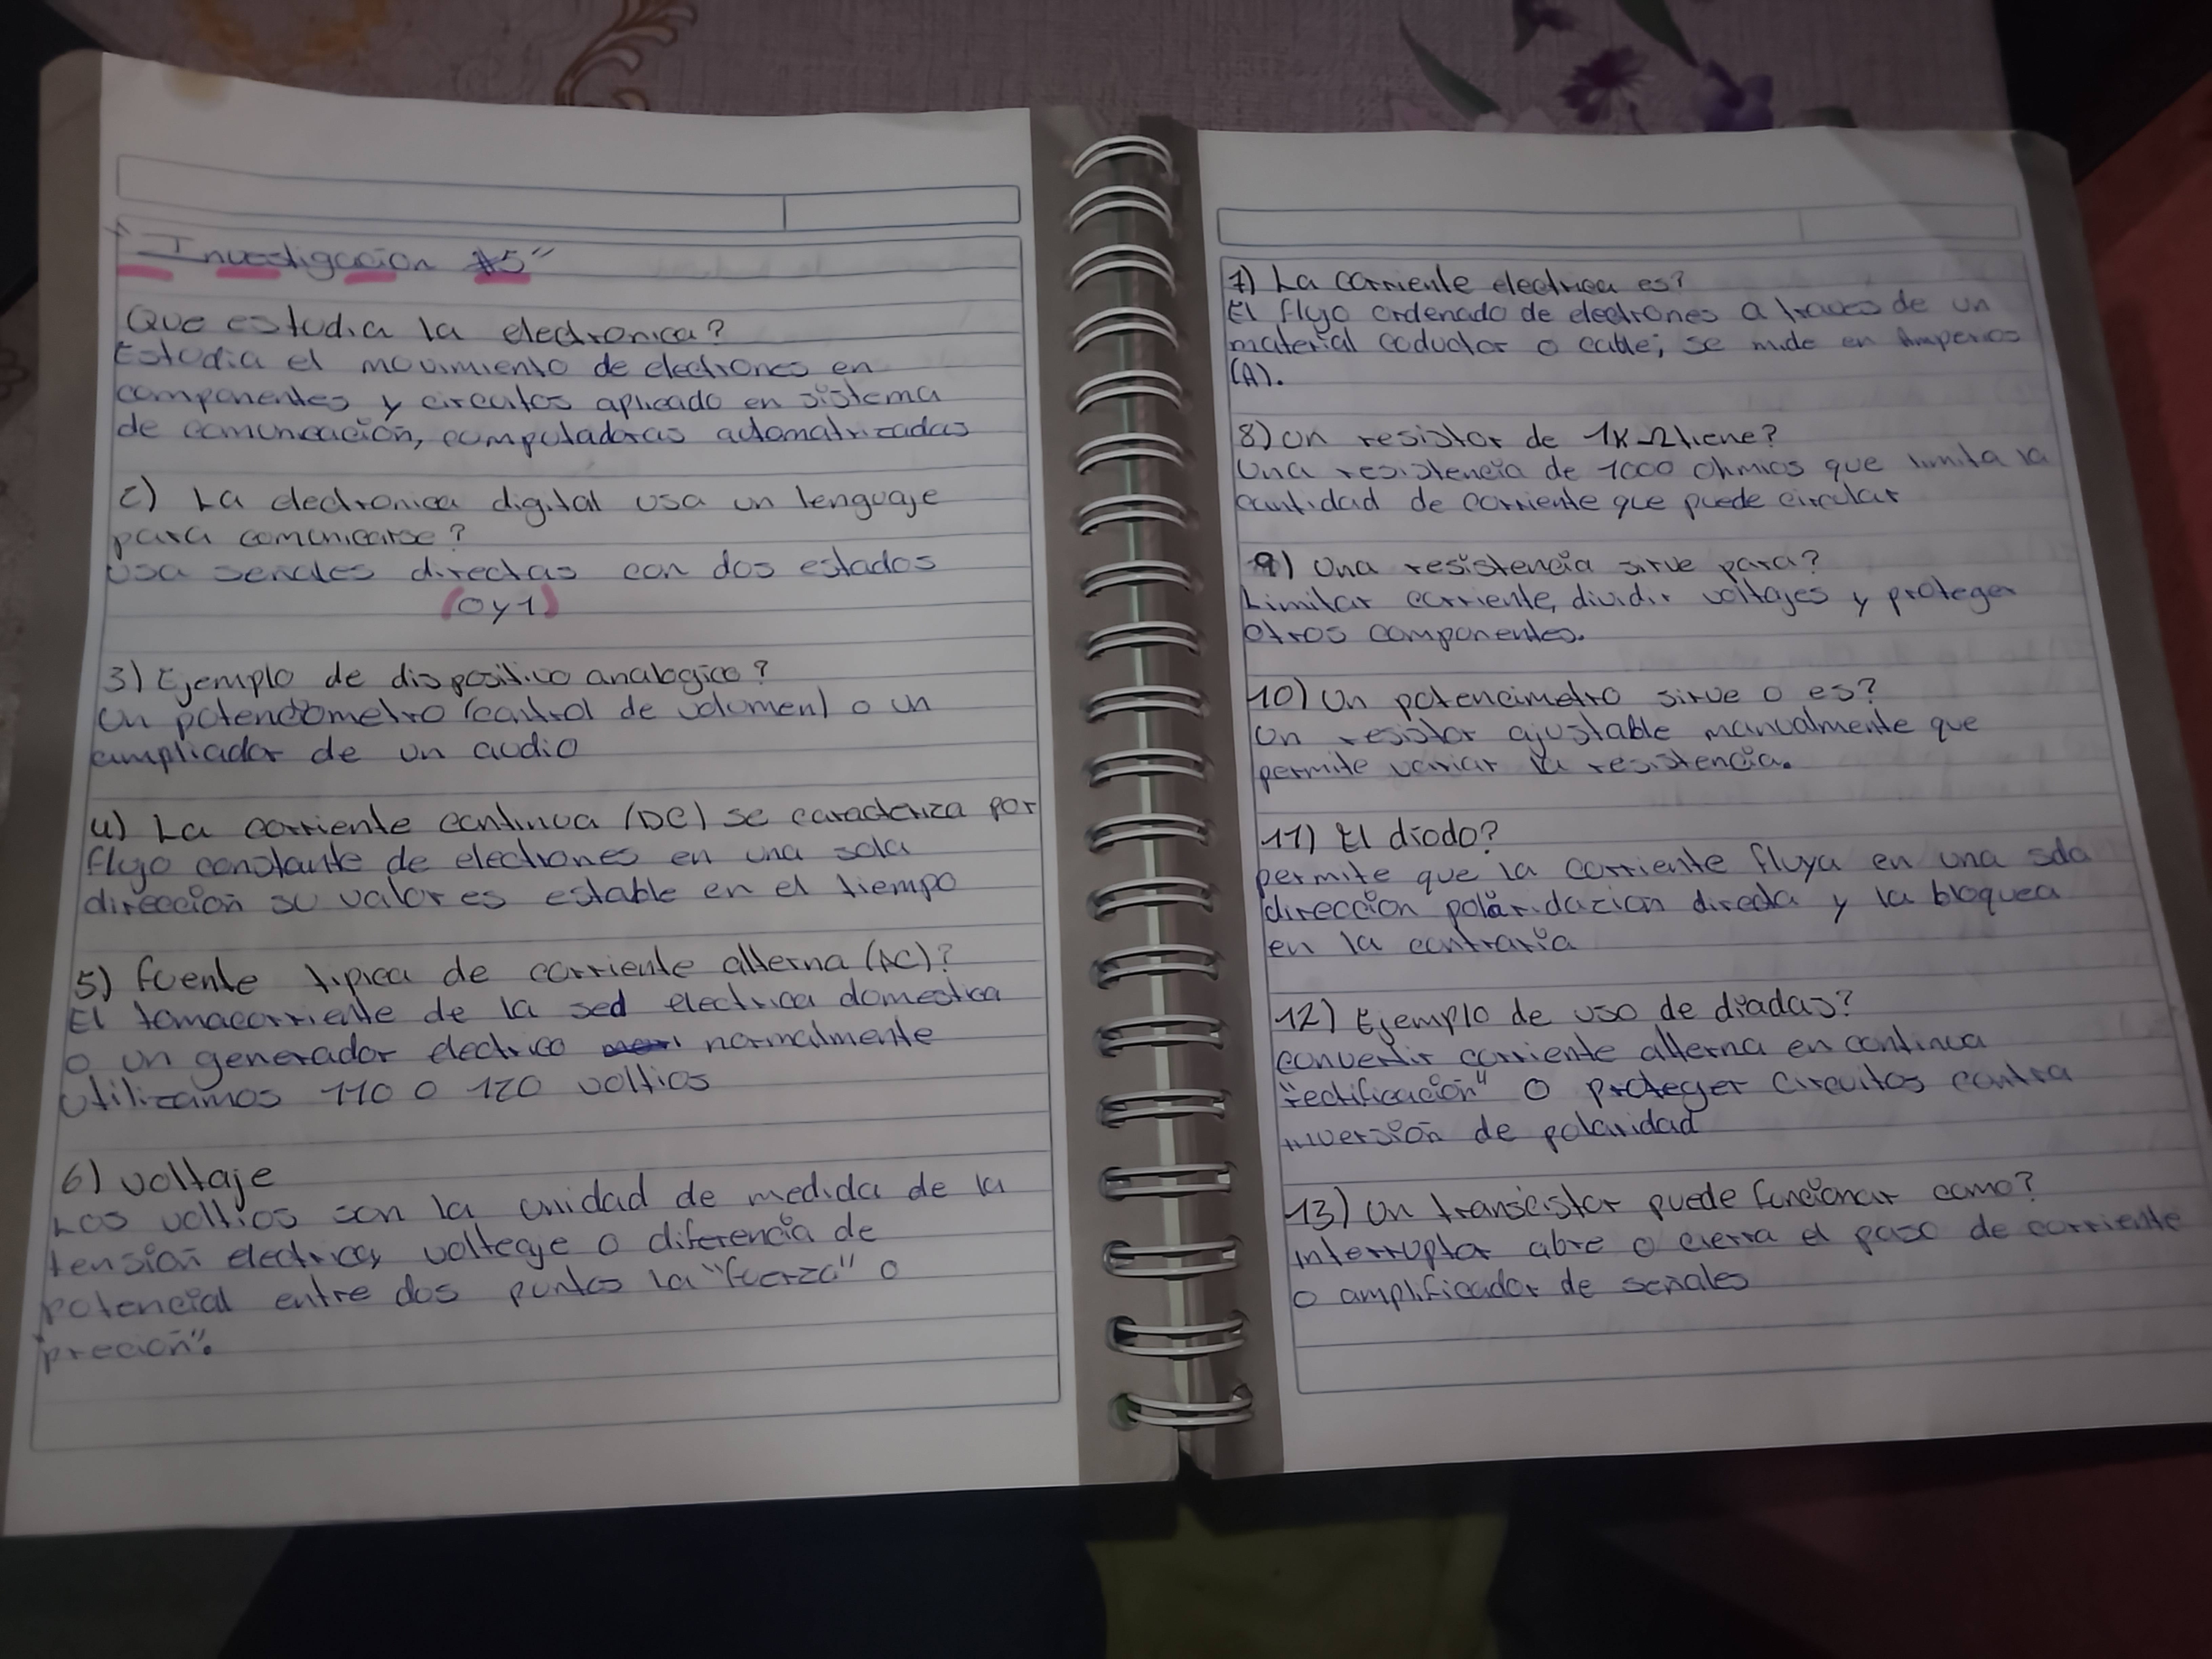 "Investigación #5"
Que estudia la electronica?
Estudia el movimiento de electrones en
componentes y circuitos aplicado en sistema
de comunicación, computadoras automatrizadas
2) La electronica digital usa un lenguaje
para comunicarse?
Usa señales directas con dos estados
(0 y 1)
3) Ejemplo de dispositivo analogico?
Un potenciometro (control de volumen) o un
ampliador de un audio
4) La corriente continua (DC) se caracteriza por
flujo constante de electrones en una sola
dirección su valor es estable en el tiempo
5) fuente tipica de corriente alterna (AC)?
El tomacorriente de la sed electrica domestica
o un generador electrico normalmente
utilizamos 110 o 120 voltios
6) voltaje
Los voltios son la unidad de medida de la
tensión electrica, volteaje o diferencia de
potencial entre dos puntos la "fuerza" o
"preción".
7) La corriente electrica es?
El flujo ordenado de electrones a traves de un
material coductor o cable; se mide en Amperios
(A).
8) Un resistor de 1KΩ tiene?
Una resistencia de 1000 Ohmios que limita la
cantidad de corriente que puede circular
9) Una resistencia sirve para?
Limitar corriente, dividir voltajes y proteger
otros componentes.
10) Un potencimetro sirve o es?
Un resistor ajustable manualmente que
permite variar la resistencia.
11) El diodo?
permite que la corriente fluya en una sola
dirección polaridazion directa y la bloquea
en la contraria
12) Ejemplo de uso de diadas?
convertir corriente alterna en continua
"rectificación" o proteger circuitos contra
inversión de polaridad
13) Un transcistor puede funcionar como?
interruptor abre o cierra el paso de corriente
o amplificador de señales